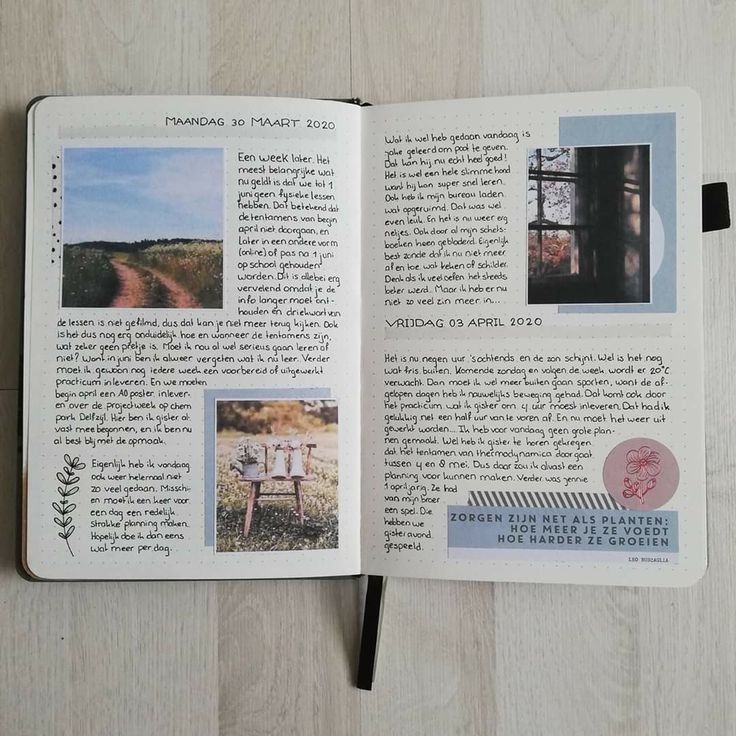 MAANDAG 30 MAART 2020
Een week later. Het
meest belangrijke wat
nu geldt is dat we tot 1
juni geen fysieke lessen
hebben. Dat betekend dat
de tentamens van begin
april niet doorgaan, en
later in een andere vorm
(online) of pas na 1 juni
op school gehouden
worden. Dit is allebei erg
vervelend omdat je de
info langer moet ont-
houden en driekwart van
de lessen is niet gefilmd, dus dat kan je niet meer terug kijken. Ook
is het dus nog erg onduidelijk hoe en wanneer de tentamens zijn,
wat zeker geen pretje is. Moet ik nou al wel serieus gaan leren of
niet? Want in juni ben ik alweer vergeten wat ik nu leer. Verder
moet ik gewoon nog iedere week een voorbereid of uitgewerkt
practicum inleveren. En we moeten
begin april een A0 poster inlever-
en over de projectweek op chem
park Delfzijl. Hier ben ik gister al-
vast mee begonnen, en ik ben nu
al best blij met de opmaak.
Eigenlijk heb ik vandaag
ook weer helemaal niet
zo veel gedaan. Missch-
ien moet ik een keer voor
een dag een redelijk
strakke planning maken.
Hopelijk doe ik dan eens
wat meer per dag.
Wat ik wel heb gedaan vandaag is
jake geleerd om poot te geven.
Dat kan hij nu echt heel goed!
Het is wel een hele slimme hond
want hij kan super snel leren.
Ook heb ik mijn bureau laden
wat opgeruimd. Dat was wel
even leuk. En het is nu weer erg
netjes. Ook door al mijn schets-
boeken heen gebladerd. Eigenlijk
best zonde dat ik nu niet meer
af en toe wat teken of schilder.
Denk als ik veel oefen het steeds
beter werd... Maar ik heb er nu
niet zo veel zin meer in...
VRIJDAG 03 APRIL 2020
Het is nu negen uur 's ochtends en de zon schijnt. Wel is het nog
wat fris buiten. Komende zondag en volgende week wordt er 20°C
verwacht. Dan moet ik wel meer buiten gaan sporten, want de af-
gelopen dagen heb ik nauwelijks beweging gehad. Dat komt ook door
het practicum wat ik gister om 4 uur moest inleveren. Dat had ik
gelukkig net een half uur van te voren af. En nu moet het weer uit
gewerkt worden... Ik heb voor vandaag geen grote plan-
nen gemaakt. Wel heb ik gister te horen gekregen
dat het tentamen van thermodynamica door gaat
tussen 4 en 8 mei. Dus daar zou ik alvast een
planning voor kunnen maken. Verder was jennie
1 april jarig. Ze had
van mijn broer
een spel. Die
hebben we
gisteravond
gespeeld.
ZORGEN ZIJN NET ALS PLANTEN:
HOE MEER JE ZE VOEDT
HOE HARDER ZE GROEIEN
LEO BUSCAGLIA